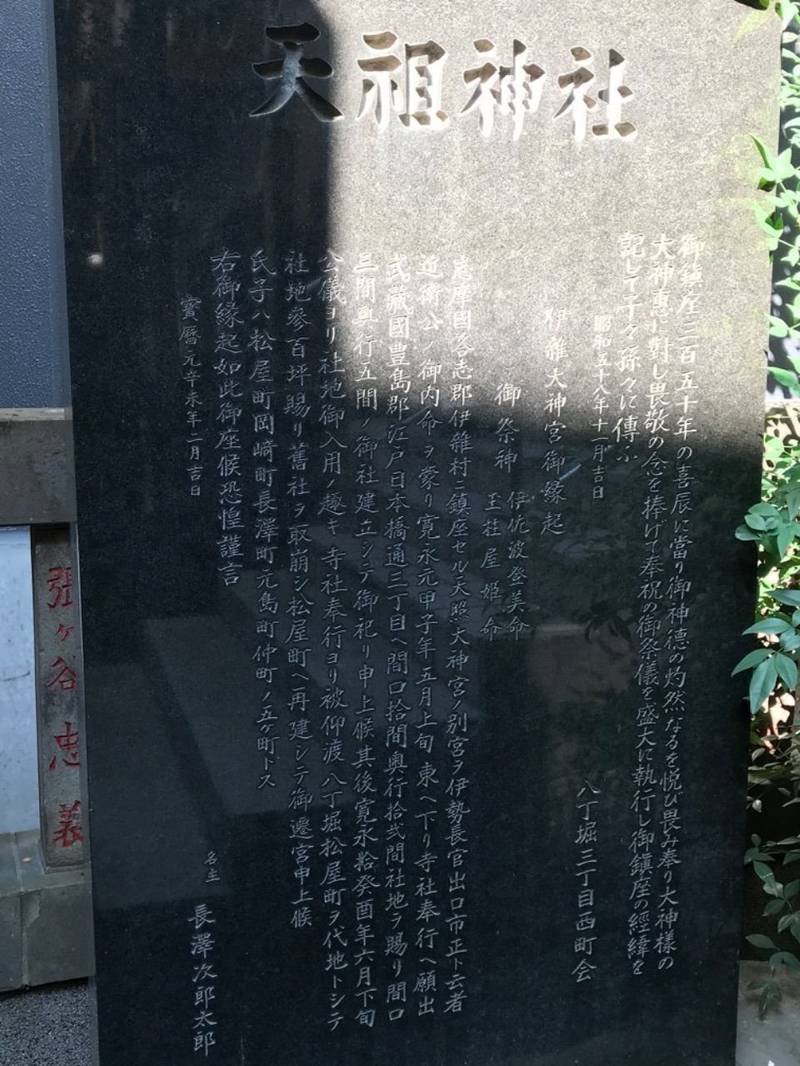 天祖神社
御鎮座三百五十年の喜辰に當り御神徳の灼然なるを悦び畏み奉り大神様の
大神恵に對し畏敬の念を捧げて奉祝の御祭儀を盛大に執行し御鎮座の經緯を
記して子々孫々に傳ふ
昭和五十八年十一月吉日
八丁堀三丁目西町会
伊雜大神宮御縁起
御祭神
伊佐波登美命
玉柱屋姫命
志摩國答志郡伊雜村ニ鎮座セル天照大神宮ノ別宮ヲ伊勢長官出口市正ト云者
近衛公ノ御内命ヲ蒙リ寛永元甲子年五月上旬東ヘ下リ寺社奉行ヘ願出
武蔵國豊島郡江戸日本橋通三丁目ヘ間口拾間奥行拾弐間社地ヲ賜リ間口
三間奥行五間ノ御社建立シテ御祀リ申上候其後寛永拾癸酉年六月下旬
公儀ヨリ社地御入用ノ趣キ寺社奉行ヨリ被仰渡八丁堀松屋町ヲ代地トシテ
社地參百坪賜リ舊社ヲ取崩シ松屋町ヘ再建シテ御遷宮申上候
氏子ハ松屋町岡崎町長澤町元島町仲町ノ五ヶ町トス
右御縁起如此御座候恐惶謹言
寳暦元辛未年二月吉日
名主
長澤次郎太郎
張ヶ谷忠義